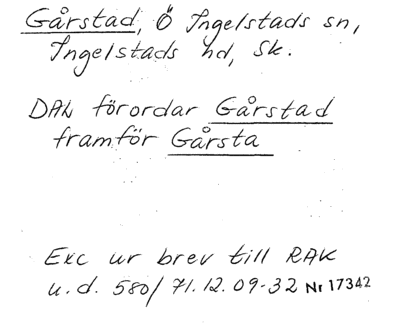 Gårstad, Ö Ingelstads sn,
Ingelstads hd, Sk.
DAL förordar Gårstad
framför Gårsta
Exc ur brev till RAK
u.d. 580/71.12.09-32 Nr 17342